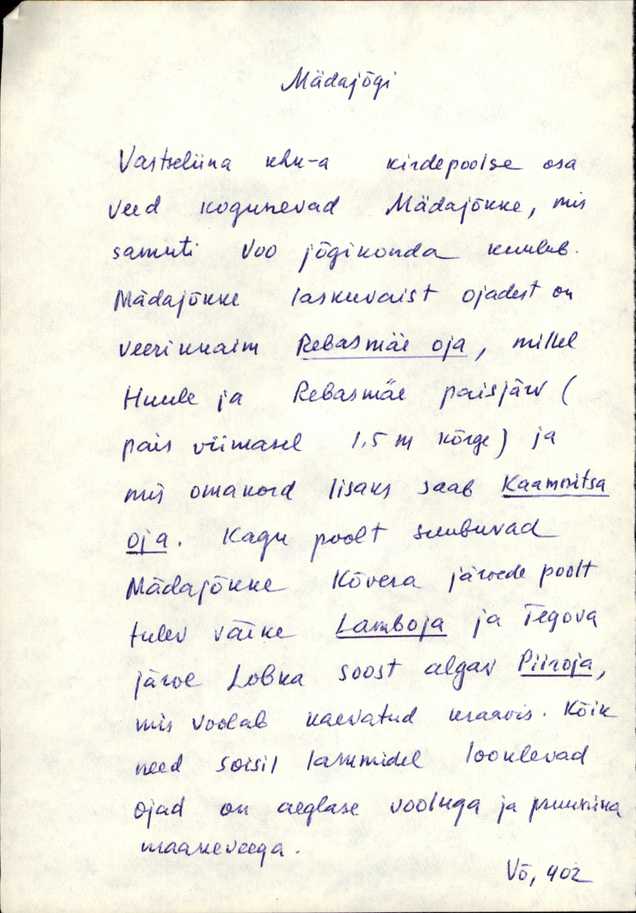 Mädajõgi
Vastseliina khk-a kirdepoolse osa
veed kogunevad Mädajõkke, mis
samuti Voo jõgikonda kuulub.
Mädajõkke laskuvaist ojadest on
veerikkaim Rebasmäe oja, millel
Huule ja Rebasmäe paisjärv (
pais viimasel 1,5 m kõrge) ja
mis omakord lisaks saab Kaamnitsa
oja. Kagu poolt suubuvad
Mädajõkke Kõvera järvede poolt
tulev väike Lamboja ja Tegova
järve Lobka soost algav Piiroja,
mis voolab kaevatud kraavis. Kõik
need soisil lammidel looklevad
ojad on aeglase vooluga ja pruunika
maakeveega.
Võ, 402